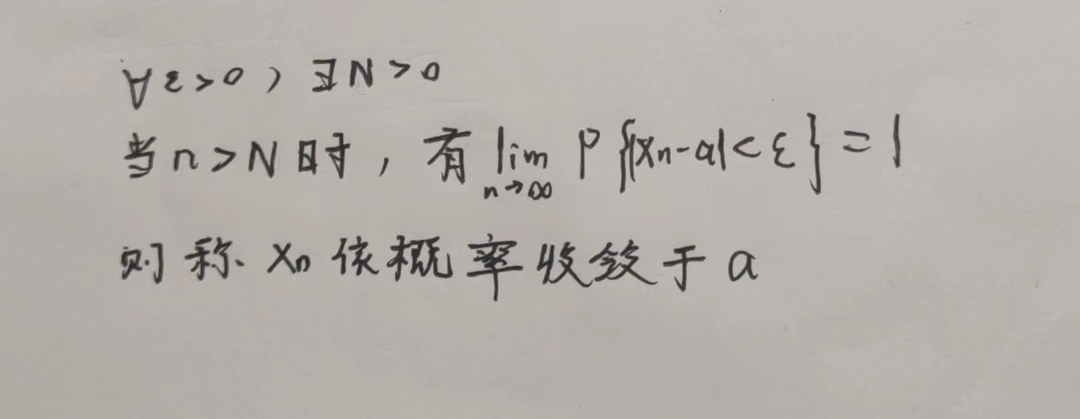 ∀ε>0, ∃N>0
当n>N时，有 lim n→∞ P{|Xn-a|<ε}=1
则称 Xn 依概率收敛于 a